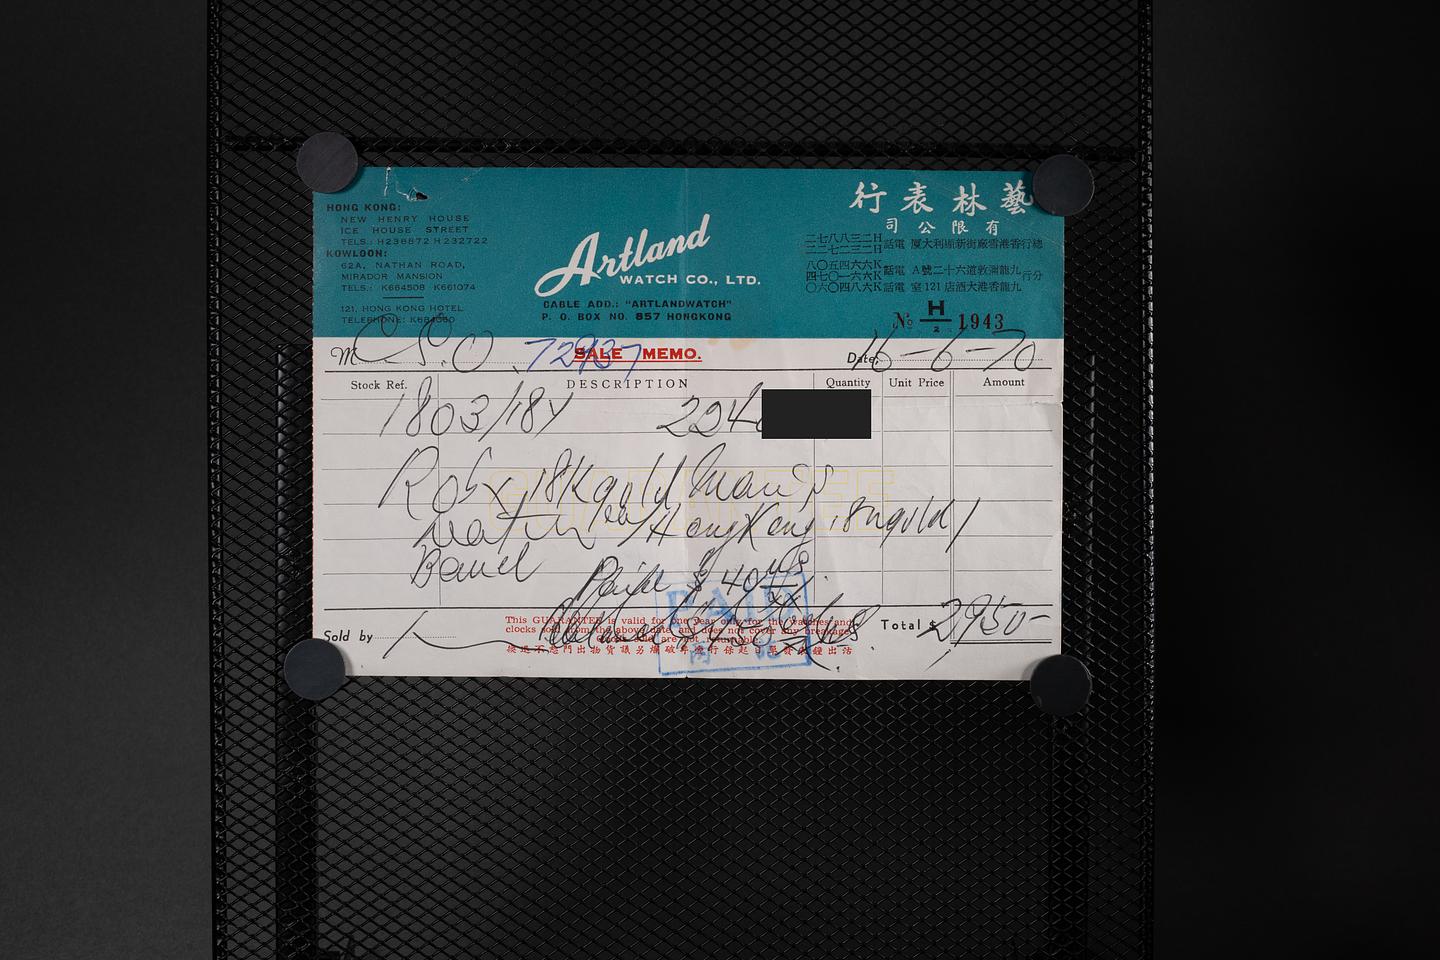 HONG KONG:
NEW HENRY HOUSE
ICE HOUSE STREET
TELS.: H238872 H232722
KOWLOON:
62A, NATHAN ROAD,
MIRADOR MANSION
TELS.: K664508 K661074
121, HONG KONG HOTEL
TELEPHONE:
Artland
WATCH CO., LTD.
CABLE ADD.: "ARTLANDWATCH"
P. O. BOX NO. 857 HONGKONG
藝林表行
有限公司
總行香港雪廠街新顯利大廈 電話 H二三八八七二
H二三二七二二
分行九龍彌敦道六十二號A 電話 K六六四五〇八
K六六一〇七四
九龍香港大酒店121室 電話 K六八四〇六〇
No H/2 1943
M C.S.O. 72937 SALE MEMO. Date, 16-6-70
Stock Ref. DESCRIPTION Quantity Unit Price Amount
1803/18Y 224
Rolex 18K gold
Hong Kong
Band
Paid $ 40
PAID
This GUARANTEE is valid for one year only for the watches and
clocks sold from the above date and does not cover any breakage.
Goods sold are not returnable.
Sold by
Total $ 2950-
GUARANTEE